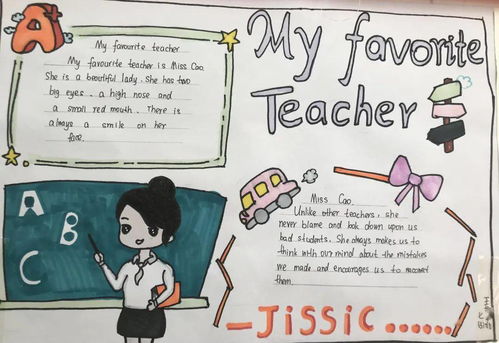 A
My favourite teacher
My favourite teacher is Miss Cao.
She is a beautiful lady. She has two
big eyes. a high nose and
a small red mouth. There is
always a smile on her
face.
My favorite
Teacher
A
B
C
Miss Cao.
Unlike other teachers, she
never blame and look down upon us
bad students. She always makes us to
think with our mind about the mistakes
we made and encourages us to recorrect
them.
—JiSSiC......